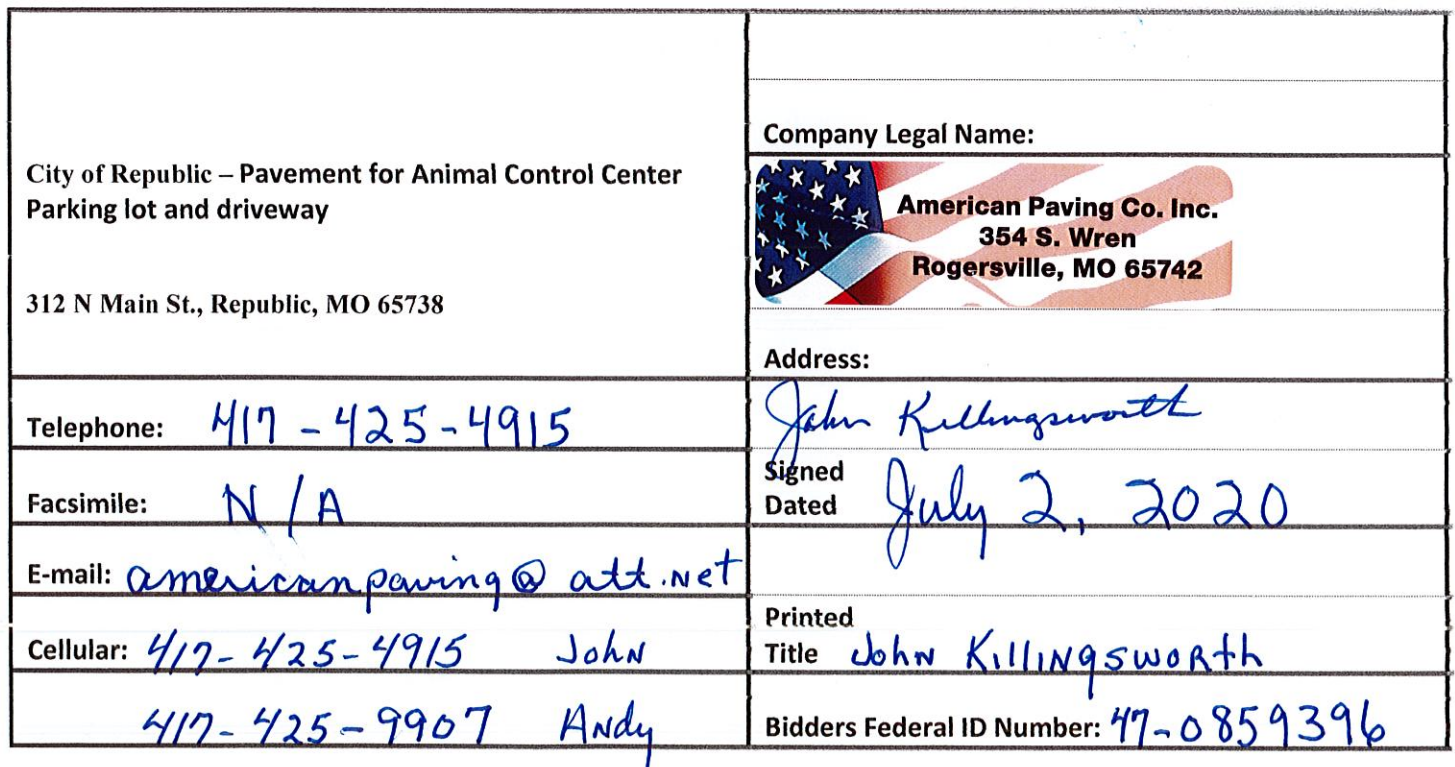 City of Republic – Pavement for Animal Control Center
Parking lot and driveway
312 N Main St., Republic, MO 65738
Telephone: 417-425-4915
Facsimile: N/A
E-mail: americanpaving@att.net
Cellular: 417-425-4915 John
417-425-9907 Andy
Company Legal Name:
American Paving Co. Inc.
354 S. Wren
Rogersville, MO 65742
Address:
John Killingsworth
Signed
Dated July 2, 2020
Printed
Title John Killingsworth
Bidders Federal ID Number: 47-0859396